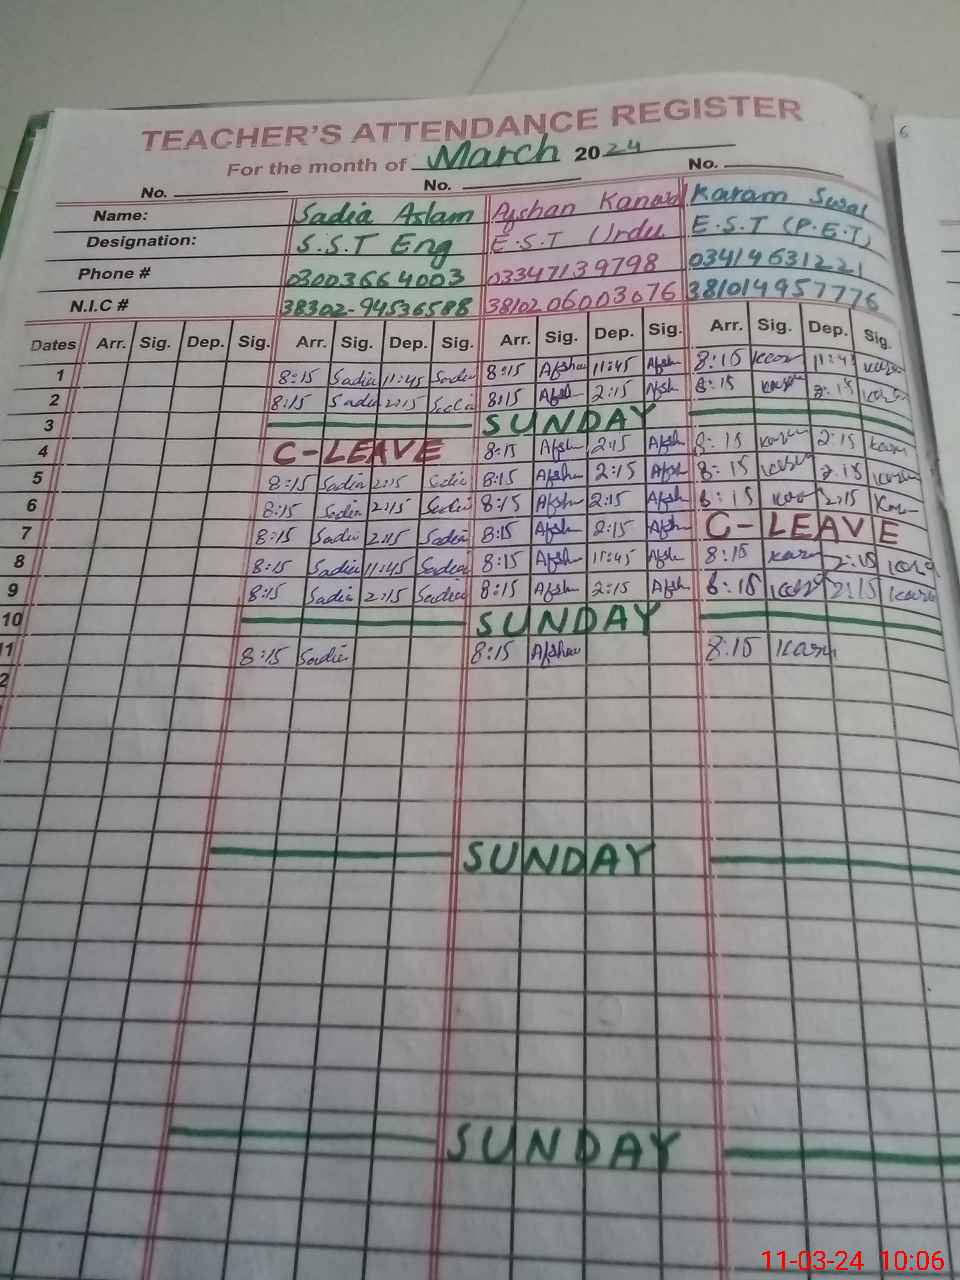 6
TEACHER'S ATTENDANCE REGISTER
For the month of March 2024
No. No. No.
Name: Sadia Aslam Afshan Kanwal Karam
Designation: S.S.T Eng E.S.T Urdu E.S.T (P.E.T)
Phone # 03003664003 03347139798 03414631221
N.I.C # 38302-94536588 3810206003076 381014957776
Dates Arr. Sig. Dep. Sig. Arr. Sig. Dep. Sig. Arr. Sig. Dep. Sig. Arr. Sig. Dep. Sig.
1 8:15 Sadia 11:45 Sadia 8:15 Afshan 11:45 Afsh 8:15 11:45
2 8:15 Sadia 2:15 Sadia 8:15 Afsh 2:15 Afsh 8:15 2:15
3 SUNDAY
4 C-LEAVE 8:15 Afsh 2:15 Afsh 8:15 2:15
5 8:15 Sadia 2:15 Sadia 8:15 Afsh 2:15 Afsh 8:15 2:15
6 8:15 Sadia 2:15 Sadia 8:15 Afsh 2:15 Afsh 8:15 2:15
7 8:15 Sadia 2:15 Sadia 8:15 Afsh 2:15 Afsh C-LEAVE
8 8:15 Sadia 11:45 Sadia 8:15 Afsh 11:45 Afsh 8:15 2:15
9 8:15 Sadia 2:15 Sadia 8:15 Afsh 2:15 Afsh 8:15 2:15
10 SUNDAY
11 8:15 Sadia 8:15 Afshan 8:15
2
SUNDAY
SUNDAY
11-03-24 10:06